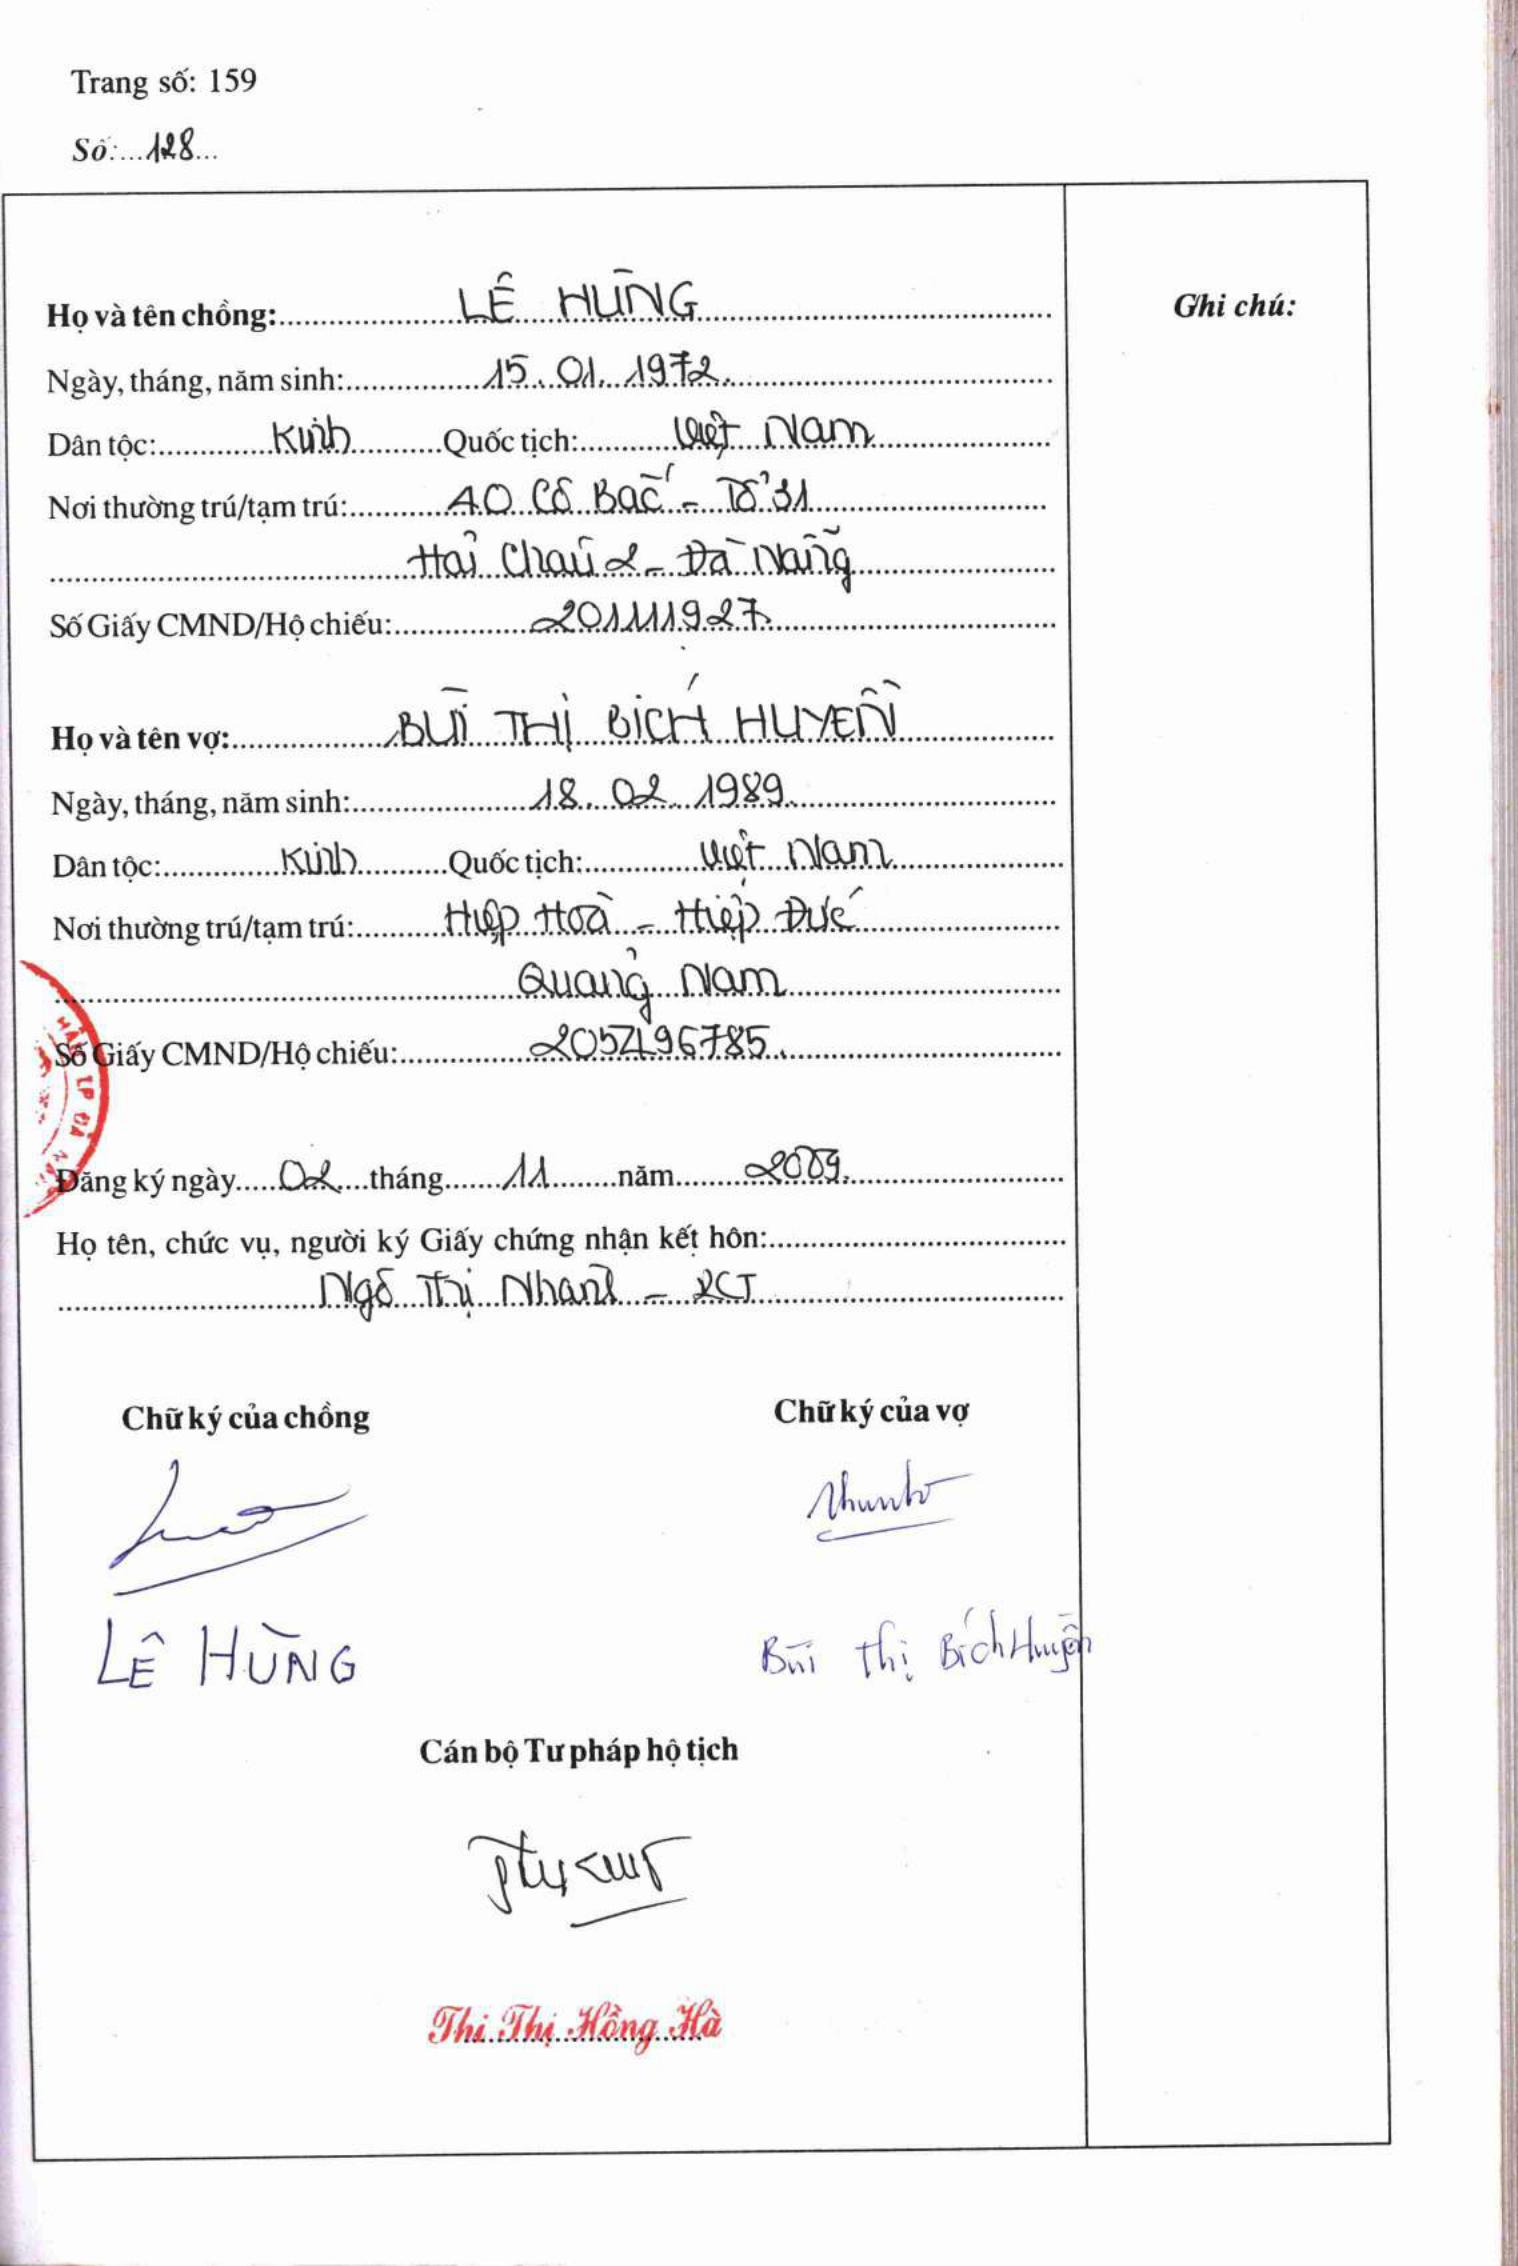 Trang số: 159
Số:...128...
Họ và tên chồng: LÊ HÙNG
Ghi chú:
Ngày, tháng, năm sinh: 15.01.1972.
Dân tộc: Kinh Quốc tịch: Việt Nam
Nơi thường trú/tạm trú: 40 Cô Bắc - Tổ 31
Hải Châu 2 - Đà Nẵng
Số Giấy CMND/Hộ chiếu: 201111927
Họ và tên vợ: BÙI THỊ BÍCH HUYỀN
Ngày, tháng, năm sinh: 18.02.1989.
Dân tộc: Kinh Quốc tịch: Việt Nam
Nơi thường trú/tạm trú: Hiệp Hoà - Hiệp Đức
Quảng Nam
Số Giấy CMND/Hộ chiếu: 205496785.
Đăng ký ngày 02 tháng 11 năm 2009.
Họ tên, chức vụ, người ký Giấy chứng nhận kết hôn:
Ngô Thị Nhanh - PCT
Chữ ký của chồng
Chữ ký của vợ
LÊ HÙNG
Bùi Thị Bích Huyền
Cán bộ Tư pháp hộ tịch
Thi Thị Hồng Hà